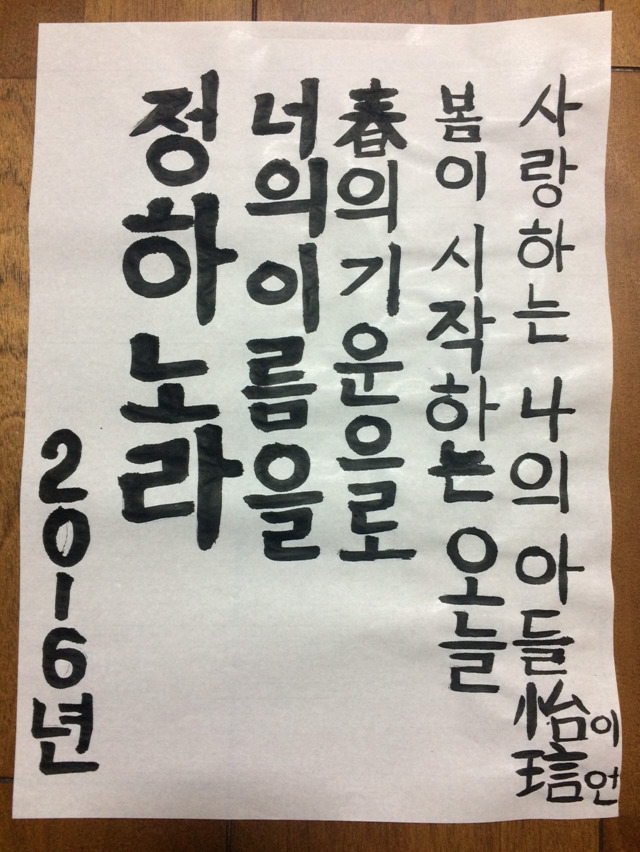 사랑하는 나의 아들 怡이 琂언
봄이 시작하는 오늘
春의 기운으로
너의 이름을
정하노라
2016년